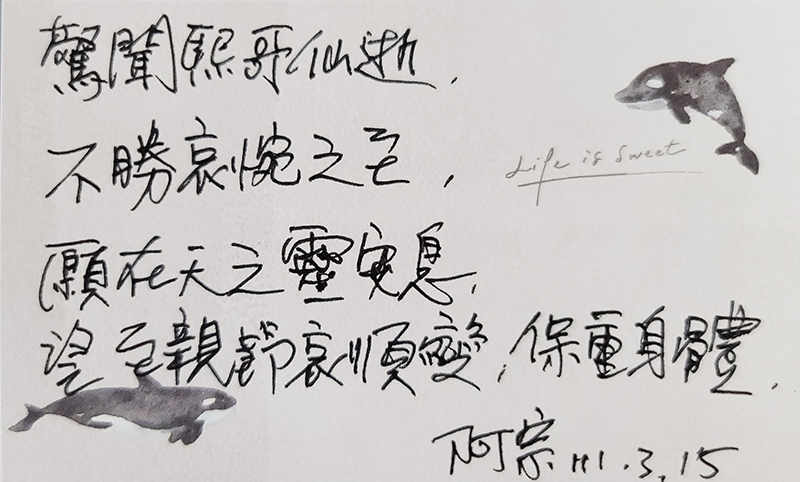 驚聞熙哥仙逝,
不勝哀惋之至,
Life is sweet
願在天之靈安息,
望至親節哀順變,保重身體,
阿宗 111.3.15